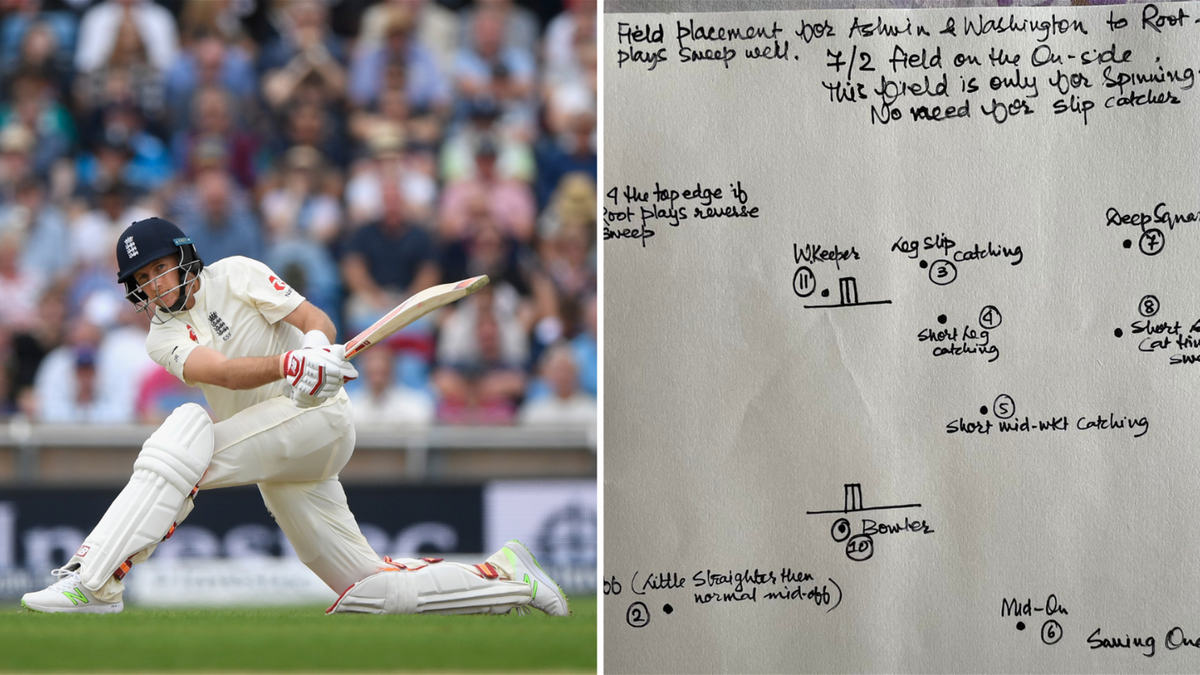 Field placement for Ashwin & Washington to Root
plays sweep well. 7/2 field on the On-side.
This field is only for Spinning
No need for slip catcher
4 the top edge if
Root plays reverse
sweep
W.Keeper
11
Leg slip catching
3
Deep Squa
7
4
Short leg
catching
8
Short
5
Short mid-wkt catching
Bowler
10
(Little Straighter then
normal mid-off)
2
Mid-On
6
Saving One